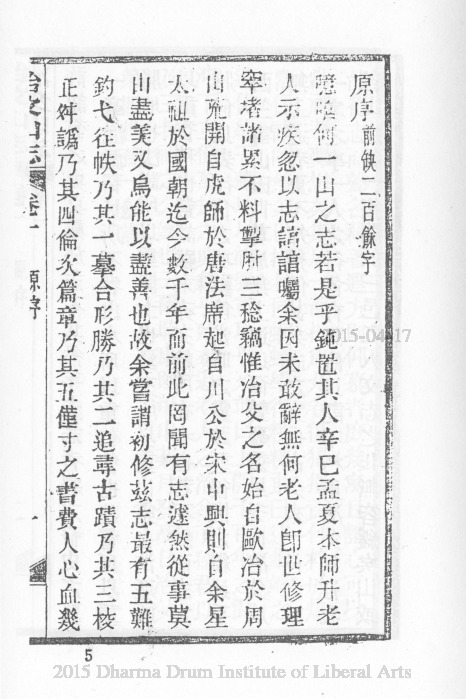 原序前缺二百餘字
噫嘻何一山之志若是乎鈍置其人辛巳孟夏本師升老
人示疾忽以志請諳囑余因未敢辭無何老人卽世修理
窣堵諸累不料掣肘三稔竊惟冶父之名始自歐冶於周
山荒開自虎師於唐法席起自川公於宋中興則自余星
太祖於國朝迄今數千年而前此罔聞有志遽然從事莫
山盡美又烏能以盡善也故余嘗謂初修茲志最有五難
鈞弋往帙乃其一摹合形勝乃其二追尋古蹟乃其三稜
正舛譌乃其四倫次篇章乃其五僅寸之書費人心血幾
冶父山志
卷一
原序
一
2015-04-17
5
2015 Dharma Drum Institute of Liberal Arts